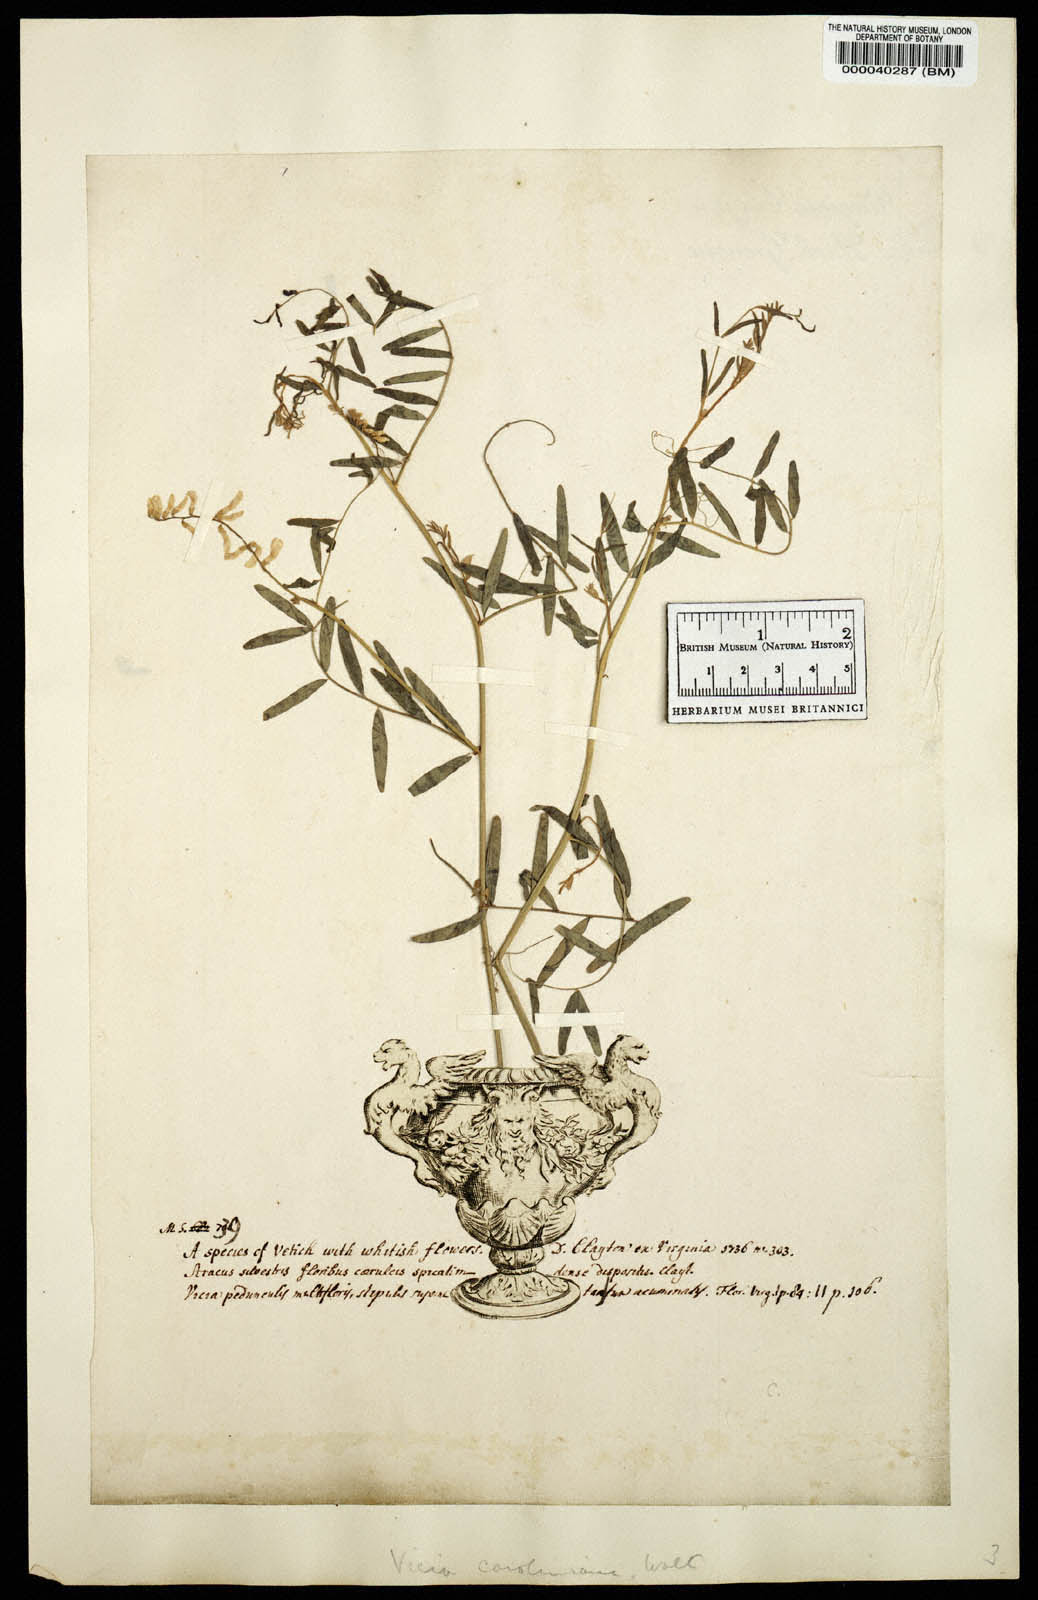 THE NATURAL HISTORY MUSEUM, LONDON
DEPARTMENT OF BOTANY
000040287 (BM)
1 2
BRITISH MUSEUM (NATURAL HISTORY)
1 2 3 4 5
HERBARIUM MUSEI BRITANNICI
M. S.
A species of Vetich with whitish flowers. D. Clayton ex Virginia 1736 n. 303.
Aracus silvestris floribus cæruleis spicatim dense dispositis. Clayt.
Vicia pedunculis multifloris, stipulis acuminatis. Flor. Virg. 1 p. 84: 11 p. 106.
C.
Vicia caroliniana, Walt
3